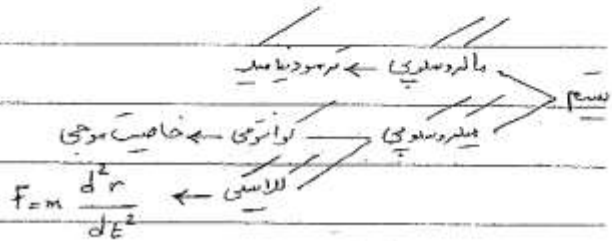 ماکروسکوپی ← ترمودینامیک
سیستم
میکروسکوپی
کوانتومی ← خاصیت موجی
کلاسیکی ← F = m d²r/dt²